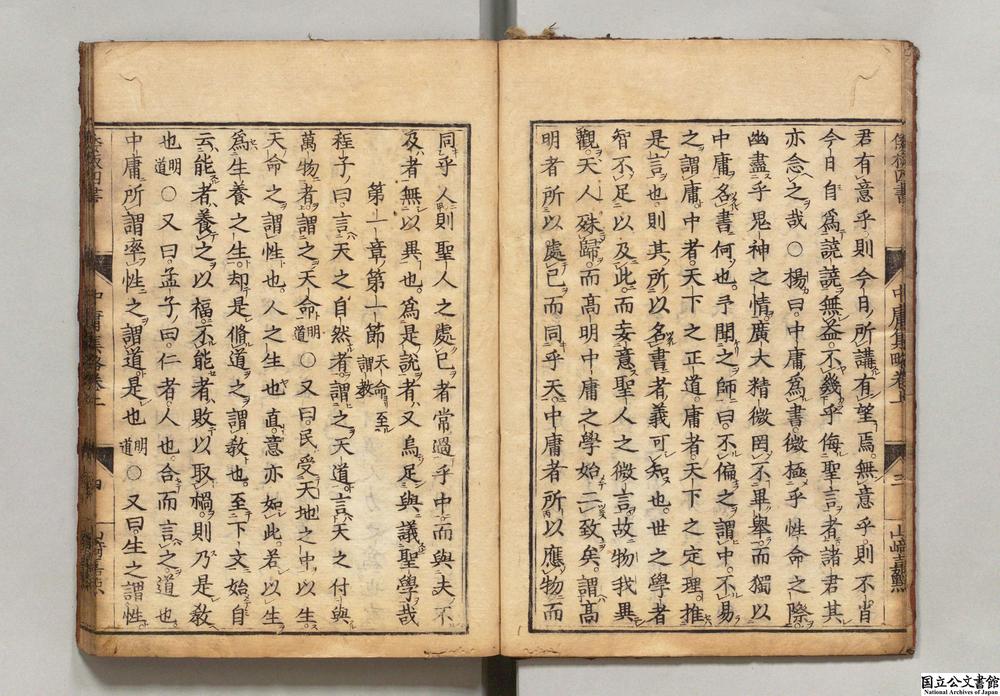 君有意乎則今日所講有望焉無意乎則不肖
今日自爲譊譊無益不幾乎侮聖言者諸君其
亦念之哉○楊曰中庸爲書微極乎性命之際
幽盡乎鬼神之情廣大精微罔不畢舉而獨以
中庸名書何也予聞之師曰不偏之謂中不易
之謂庸中者天下之正道庸者天下之定理推
是言也則其所以名書者義可知也世之學者
智不足以及此而妄意聖人之微言故物我異
觀天人殊歸而高明中庸之學始二致矣謂高
明者所以處己而同乎天中庸者所以應物而
同乎人則聖人之處己者常過乎中而與夫不
及者無以異也爲是說者又烏足與議聖學哉
第一章第一節天命至謂教
程子曰言天之自然者謂之天道言天之付與
萬物者謂之天命明道○又曰民受天地之中以生
天命之謂性也人之生也直意亦如此若以生
爲生養之生却是脩道之謂教也至下文始自
云能者養之以福不能者敗以取禍則乃是教
也明道○又曰孟子曰仁者人也合而言之道也
中庸所謂率性之謂道是也明道○又曰生之謂性
中庸集略卷上
三
山崎嘉點
四
国立公文書館
National Archives of Japan